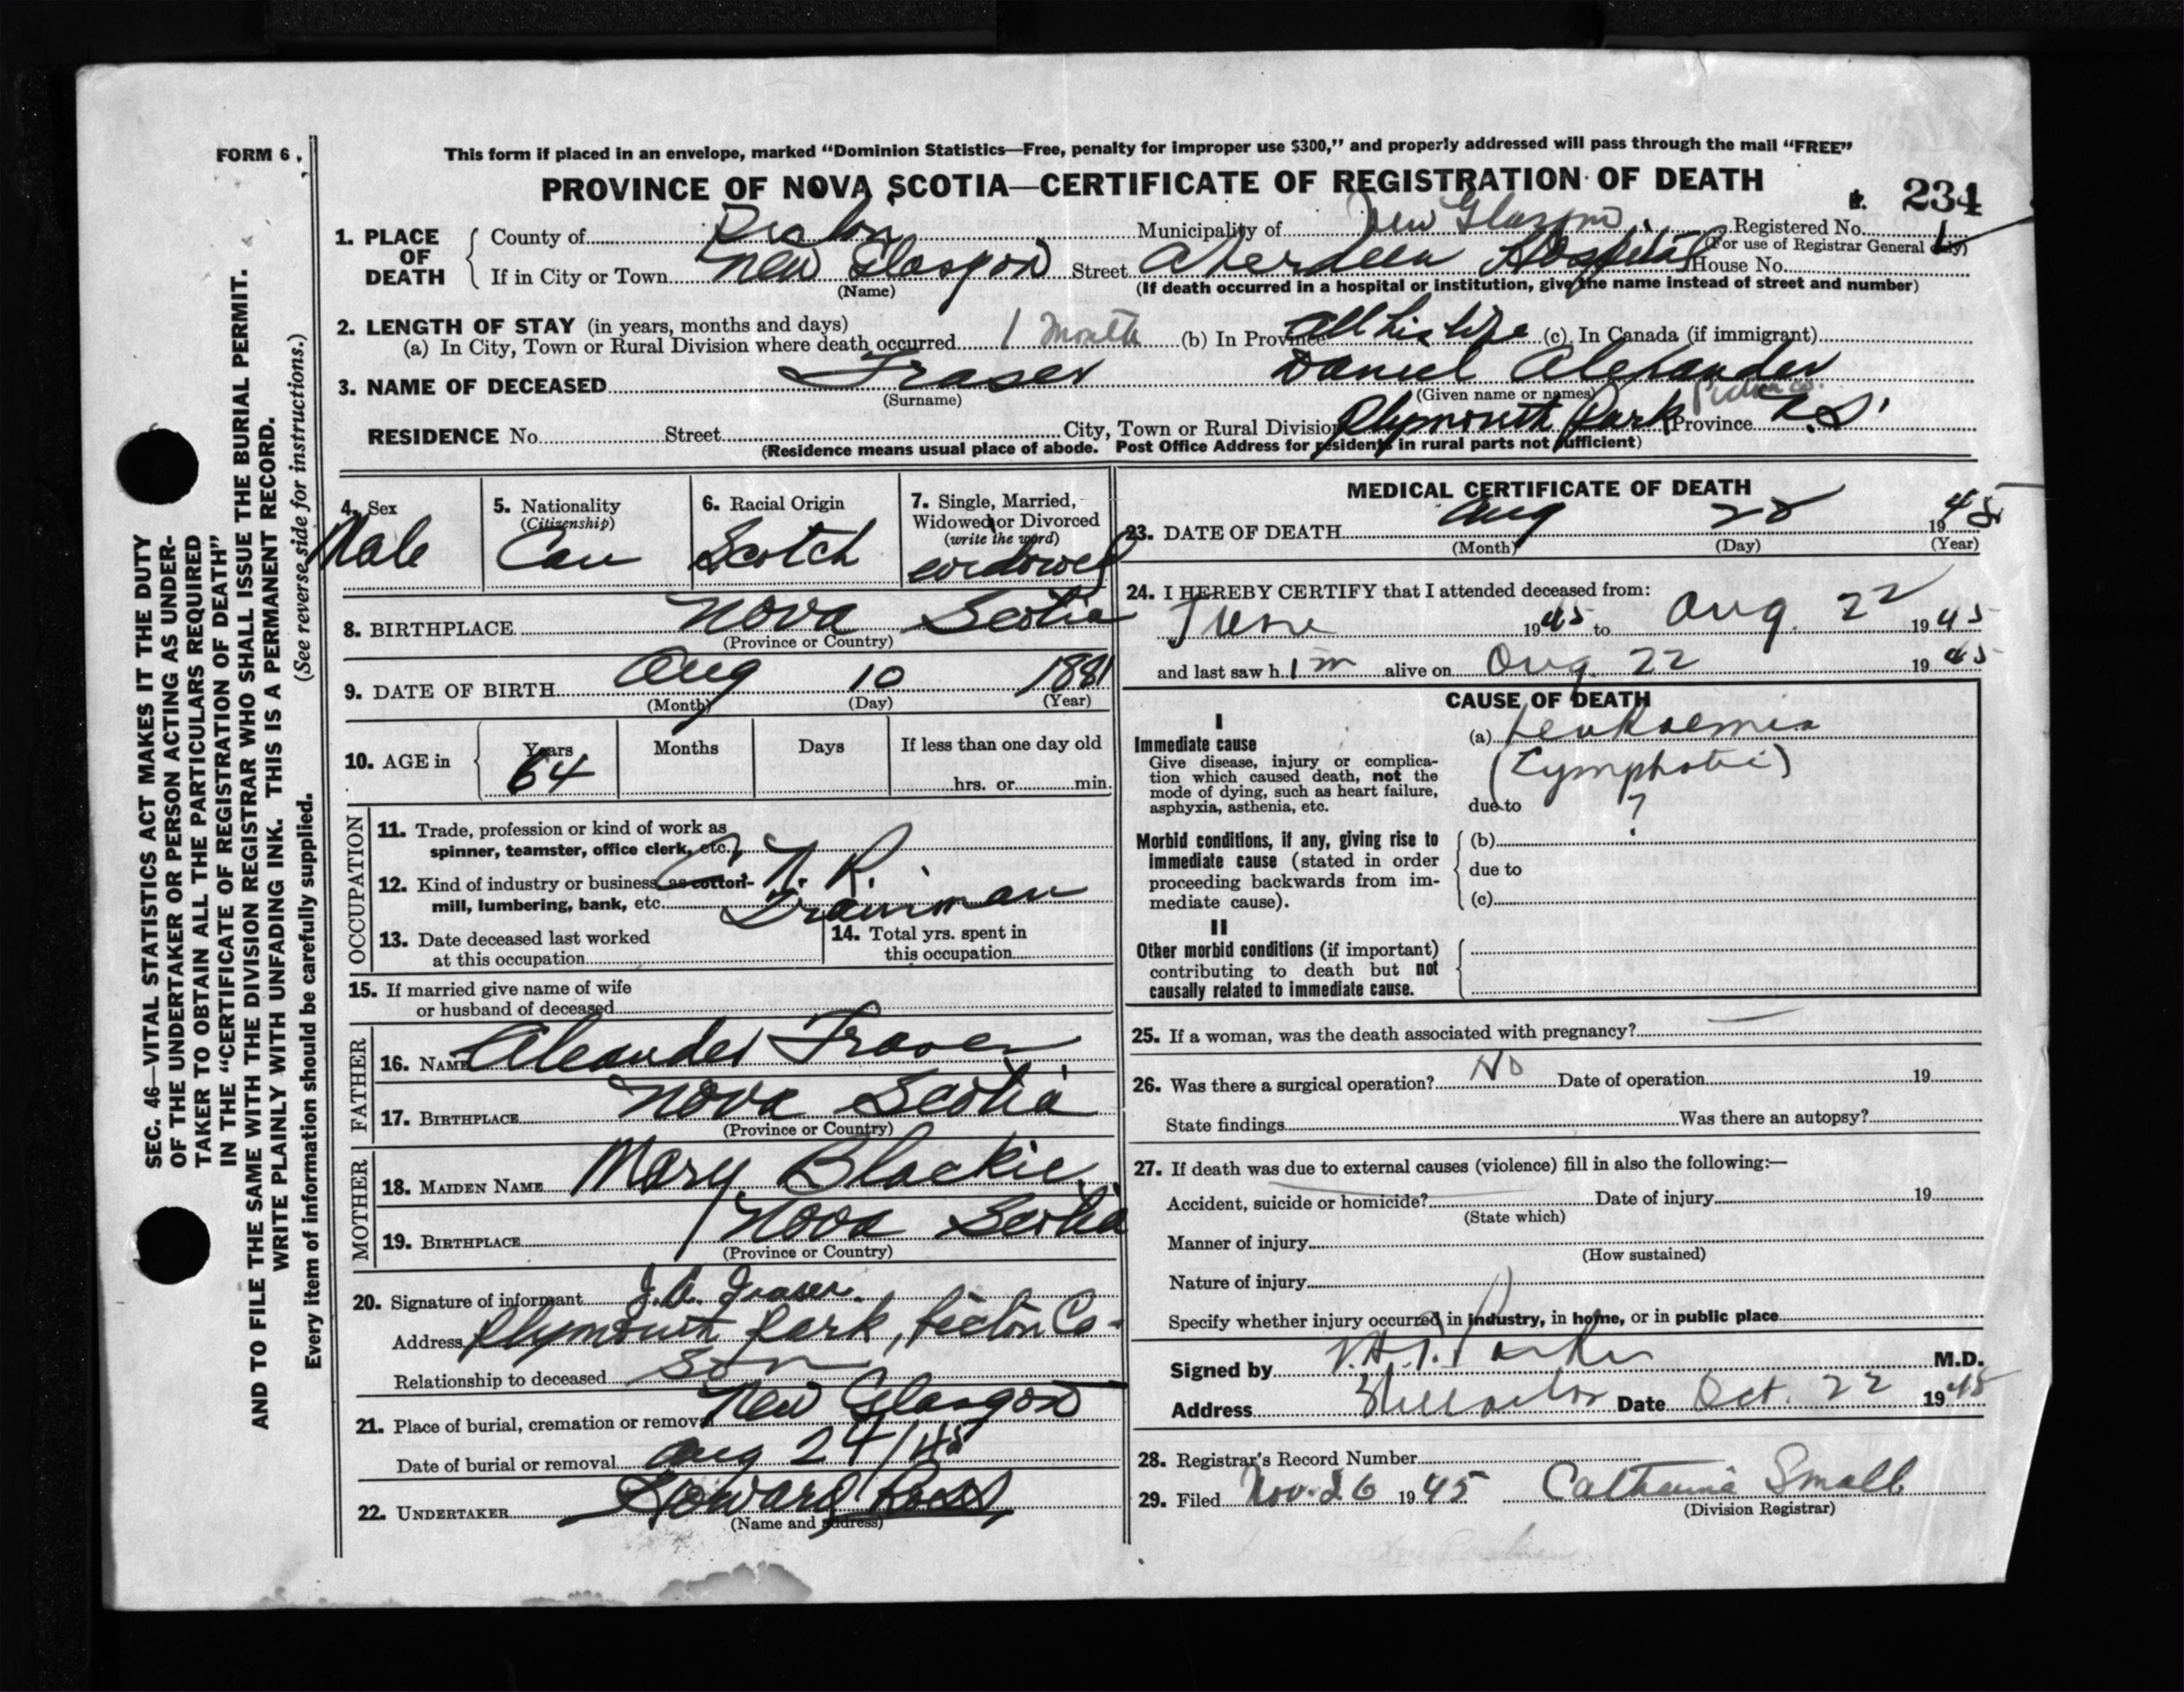 FORM 6.
This form if placed in an envelope, marked “Dominion Statistics—Free, penalty for improper use $300,” and properly addressed will pass through the mail “FREE”
PROVINCE OF NOVA SCOTIA—CERTIFICATE OF REGISTRATION OF DEATH
234
1. PLACE OF DEATH
County of Pictou Municipality of New Glasgow Registered No.
(For use of Registrar General only)
If in City or Town New Glasgow Street Aberdeen Hospital House No.
(Name) (If death occurred in a hospital or institution, give the name instead of street and number)
2. LENGTH OF STAY (in years, months and days)
(a) In City, Town or Rural Division where death occurred 1 month (b) In Province all his life (c) In Canada (if immigrant)
3. NAME OF DECEASED Fraser Daniel Alexander
(Surname) (Given name or names)
Pictou Co.
RESIDENCE No. Street City, Town or Rural Division Plymouth Park Province N.S.
(Residence means usual place of abode. Post Office Address for residents in rural parts not sufficient)
4. Sex
Male
5. Nationality
(Citizenship)
Can
6. Racial Origin
Scotch
7. Single, Married,
Widowed or Divorced
(write the word)
widower
8. BIRTHPLACE Nova Scotia
(Province or Country)
9. DATE OF BIRTH Aug 10 1881
(Month) (Day) (Year)
10. AGE in Years Months Days If less than one day old
64 hrs. or min.
OCCUPATION
11. Trade, profession or kind of work as
spinner, teamster, office clerk, etc.
C. N. R.
12. Kind of industry or business, as cotton-
mill, lumbering, bank, etc. Trainman
13. Date deceased last worked
at this occupation
14. Total yrs. spent in
this occupation
15. If married give name of wife
or husband of deceased
FATHER
16. NAME Aleander Fraser
17. BIRTHPLACE Nova Scotia
(Province or Country)
MOTHER
18. MAIDEN NAME Mary Blackie
19. BIRTHPLACE Nova Scotia
(Province or Country)
20. Signature of informant J. A. Fraser
Address Plymouth Park, Pictou Co-
Relationship to deceased Son
21. Place of burial, cremation or removal New Glasgow
Date of burial or removal Aug 24/45
22. UNDERTAKER Howard Ross
(Name and address)
MEDICAL CERTIFICATE OF DEATH
23. DATE OF DEATH Aug 22 1945
(Month) (Day) (Year)
24. I HEREBY CERTIFY that I attended deceased from:
June 1945 to Aug. 22 1945
and last saw him alive on Aug. 22 1945
CAUSE OF DEATH
I
Immediate cause
Give disease, injury or complica-
tion which caused death, not the
mode of dying, such as heart failure,
asphyxia, asthenia, etc.
(a) Leukaemia
(Lymphatic)
due to ?
Morbid conditions, if any, giving rise to
immediate cause (stated in order
proceeding backwards from im-
mediate cause).
(b)
due to
(c)
II
Other morbid conditions (if important)
contributing to death but not
causally related to immediate cause.
25. If a woman, was the death associated with pregnancy?
26. Was there a surgical operation? No Date of operation 19
State findings Was there an autopsy?
27. If death was due to external causes (violence) fill in also the following:—
Accident, suicide or homicide? Date of injury 19
(State which)
Manner of injury
(How sustained)
Nature of injury
Specify whether injury occurred in industry, in home, or in public place
Signed by Parker M.D.
Address Stellarton Date Oct. 22 1945
28. Registrar's Record Number
29. Filed Nov. 26 1945 Catherine Small
(Division Registrar)
SEC. 46—VITAL STATISTICS ACT MAKES IT THE DUTY
OF THE UNDERTAKER OR PERSON ACTING AS UNDER-
TAKER TO OBTAIN ALL THE PARTICULARS REQUIRED
IN THE “CERTIFICATE OF REGISTRATION OF DEATH”
AND TO FILE THE SAME WITH THE DIVISION REGISTRAR WHO SHALL ISSUE THE BURIAL PERMIT.
WRITE PLAINLY WITH UNFADING INK. THIS IS A PERMANENT RECORD.
Every item of information should be carefully supplied. (See reverse side for instructions.)